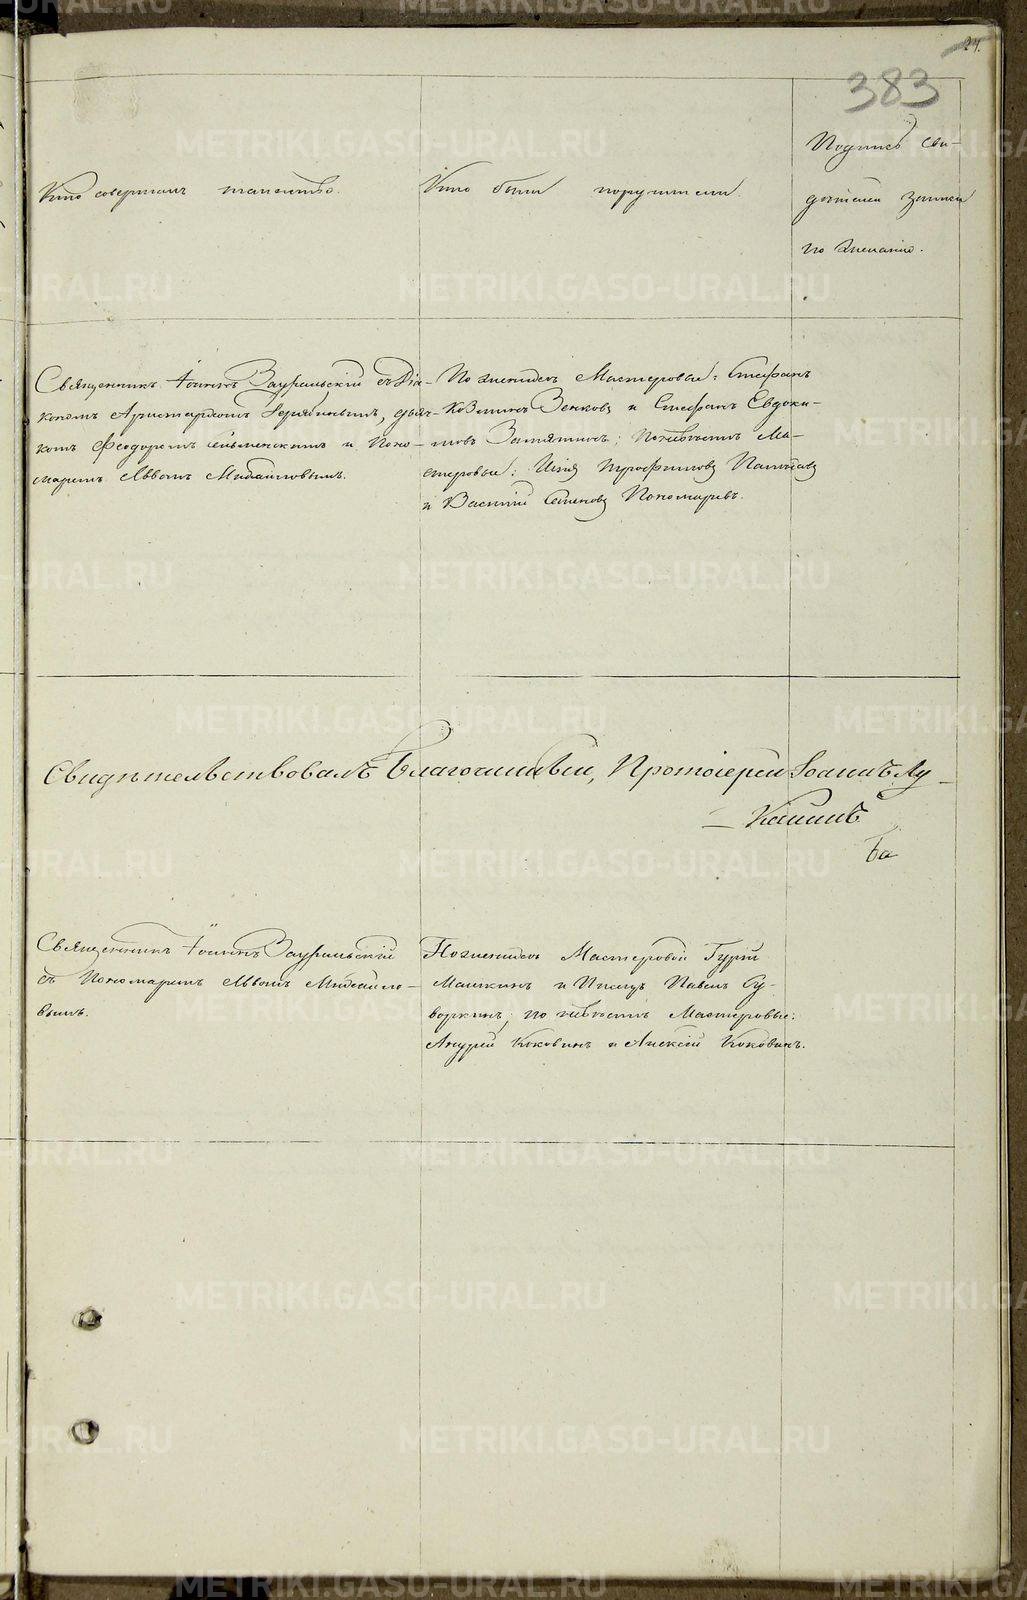 24.
383
Кто совершалъ таинство.
Кто были поручители.
Подпись сви-
дѣтелей записи
по желанію.
Священникъ Іоаннъ Зауральскій съ Діа-
кономъ Аристархомъ, дьяч-
комъ Феодоромъ и Поно-
маремъ Львомъ Михайловымъ.
По женихѣ Мастеровые: Стефанъ
Козминъ Венковъ и Стефанъ Евдоки-
мовъ Замятинъ; По невѣстѣ Ма-
стеровые: Илья Трофимовъ
и Василій Семеновъ Пономаревъ.
Свидѣтельствовалъ Благочинный, Протоіерей Іоаннъ Лу-
канинъ
Священникъ Іоаннъ Зауральскій
съ Пономаремъ Львомъ Михайло-
вымъ.
По женихѣ Мастеровой Гурій
Машкинъ и Писецъ Павелъ Су-
воркинъ; по невѣстѣ Мастеровые:
Андрей Коковинъ и Алексѣй Коковинъ.
METRIKI.GASO-URAL.RU